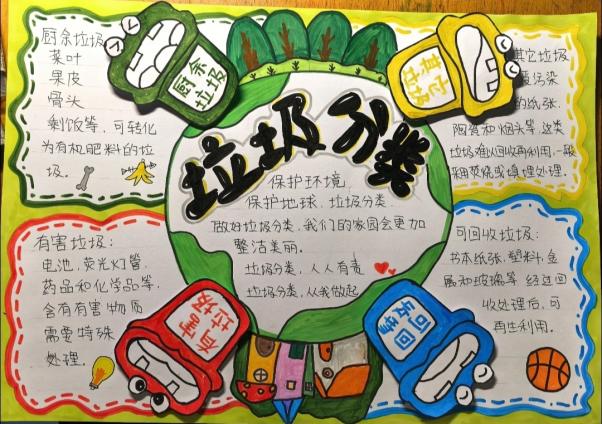 厨余垃圾
菜叶
果皮
骨头
剩饭等,可转化
为有机肥料的垃
圾。
厨余
垃圾
其它
垃圾
其它垃圾
污染
的纸张.
陶瓷和烟头等,这类
垃圾难以回收再利用,一般
采用焚烧或填埋处理.
垃圾分类
保护环境,
保护地球,垃圾分类
做好垃圾分类,我们的家园会更加
整洁美丽.
垃圾分类,人人有责
垃圾分类,从我做起
有害垃圾:
电池,荧光灯管,
药品和化学品等,
含有有害物质
需要特殊
处理.
有害
垃圾
可回
收物
可回收垃圾:
书本纸张,塑料,金
属和玻璃等 经过回
收处理后,可
再生利用.